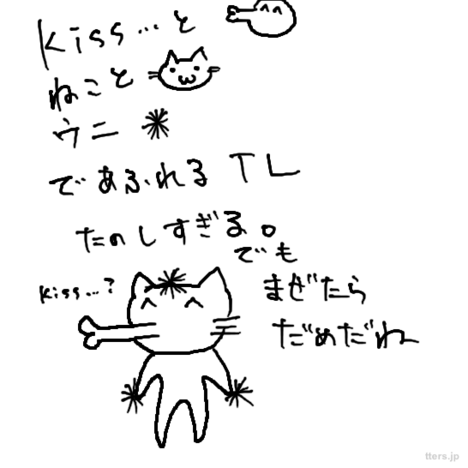 kiss...と
ねこと
ウニ
であふれるTL
たのしすぎる。
でも
まぜたら
だめだね
kiss...?
tters.jp